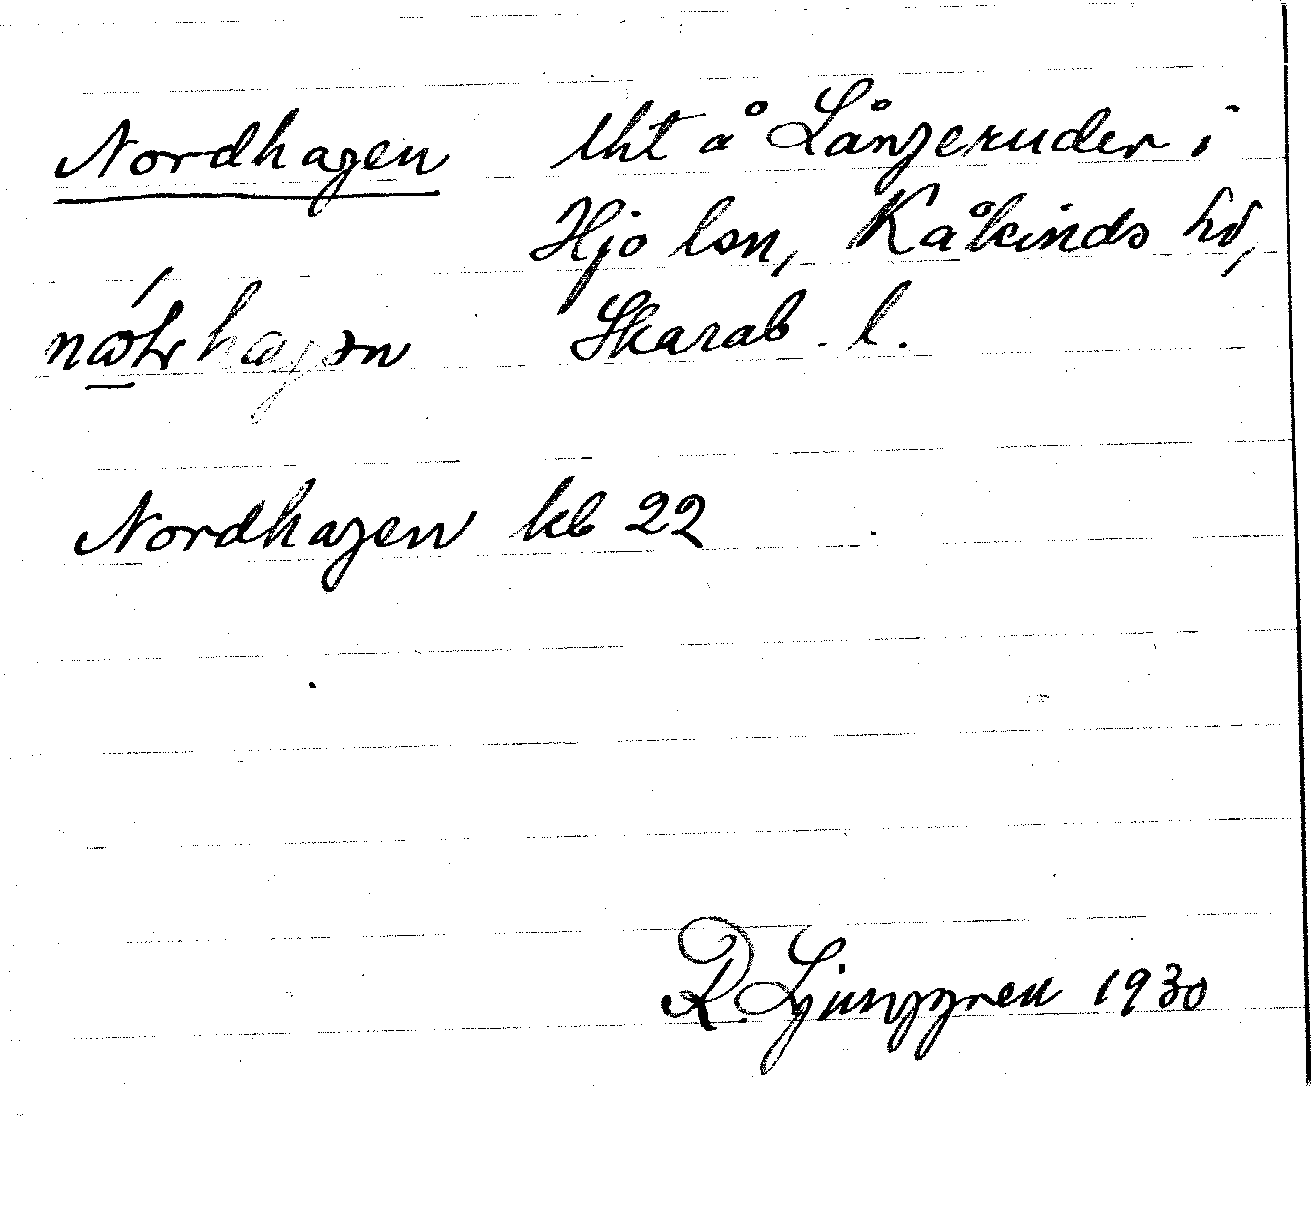 Nordhagen lht å Långeruder i
Hjo lsn, Kåkinds hd,
Skarab. l.
Nordhagen kb 22
R. Ljunggren 1930